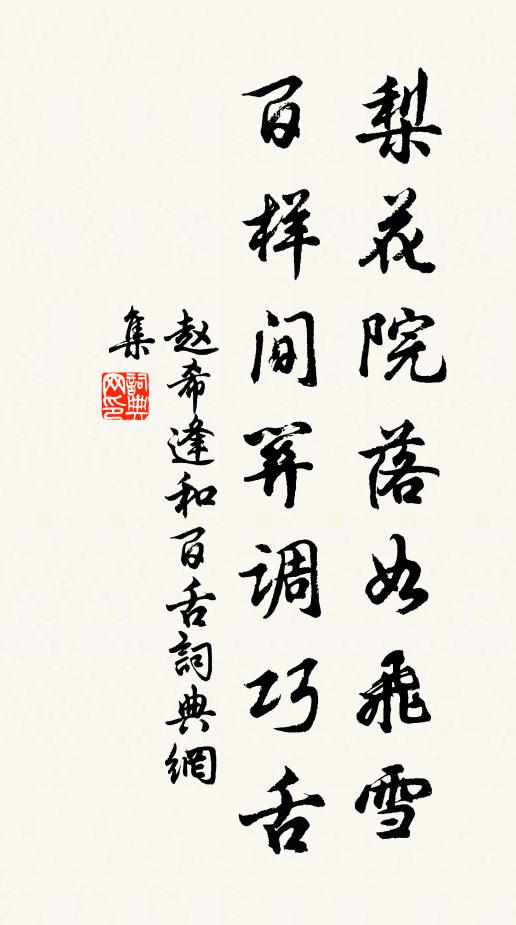 梨花院落如飛雪
百样间関调巧舌
赵希逢和百舌詞典網
集
詞典
网印